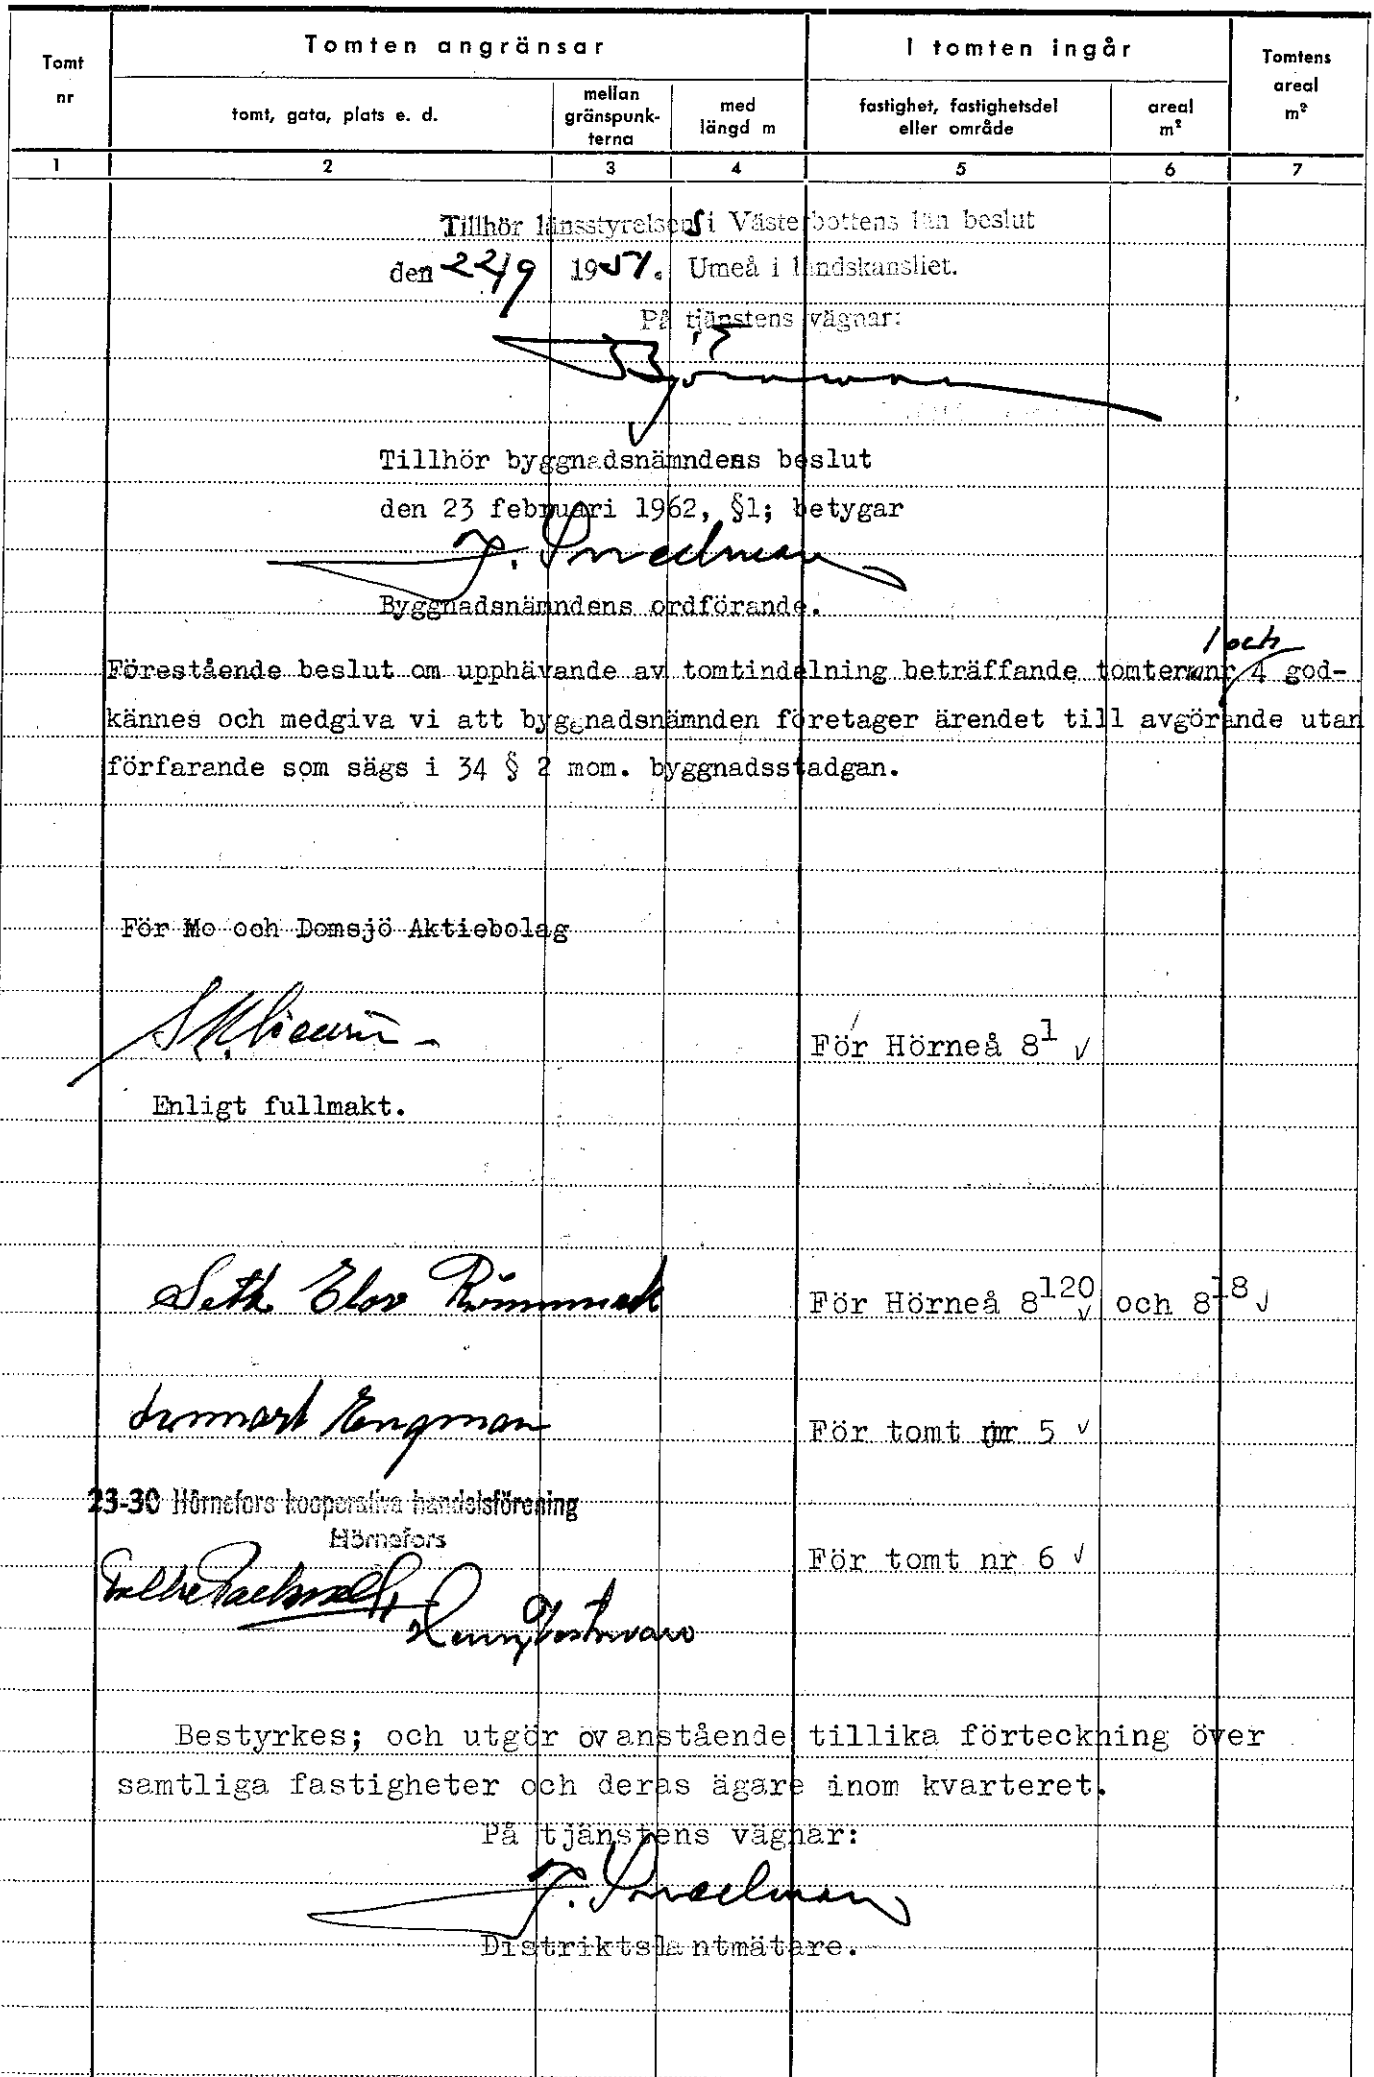 Tomt nr
Tomten angränsar
I tomten ingår
Tomtens areal m²
tomt, gata, plats e. d.
mellan gränspunkterna
med längd m
fastighet, fastighetsdel eller område
areal m²
1 2 3 4 5 6 7
Tillhör länsstyrelsens i Västerbottens län beslut
den 22/9 1951. Umeå i landskansliet.
På tjänstens vägnar:
Tillhör byggnadsnämndens beslut
den 23 februari 1962, §1; betygar
Byggnadsnämndens ordförande.
1 och
Förestående beslut om upphävande av tomtindelning beträffande tomterna nr 4 god-
kännes och medgiva vi att byggnadsnämnden företager ärendet till avgörande utan
förfarande som sägs i 34 § 2 mom. byggnadsstadgan.
För Mo och Domsjö Aktiebolag
För Hörneå 8¹ √
Enligt fullmakt.
Seth Elov
För Hörneå 8¹²⁰ √ och 8¹⁸ √
Lennart Engman
För tomt nr 5 √
23-30 Hörnefors kooperativa handelsförening
Hörnefors
För tomt nr 6 √
Bestyrkes; och utgör ovanstående tillika förteckning över
samtliga fastigheter och deras ägare inom kvarteret.
På tjänstens vägnar:
Distriktslantmätare.